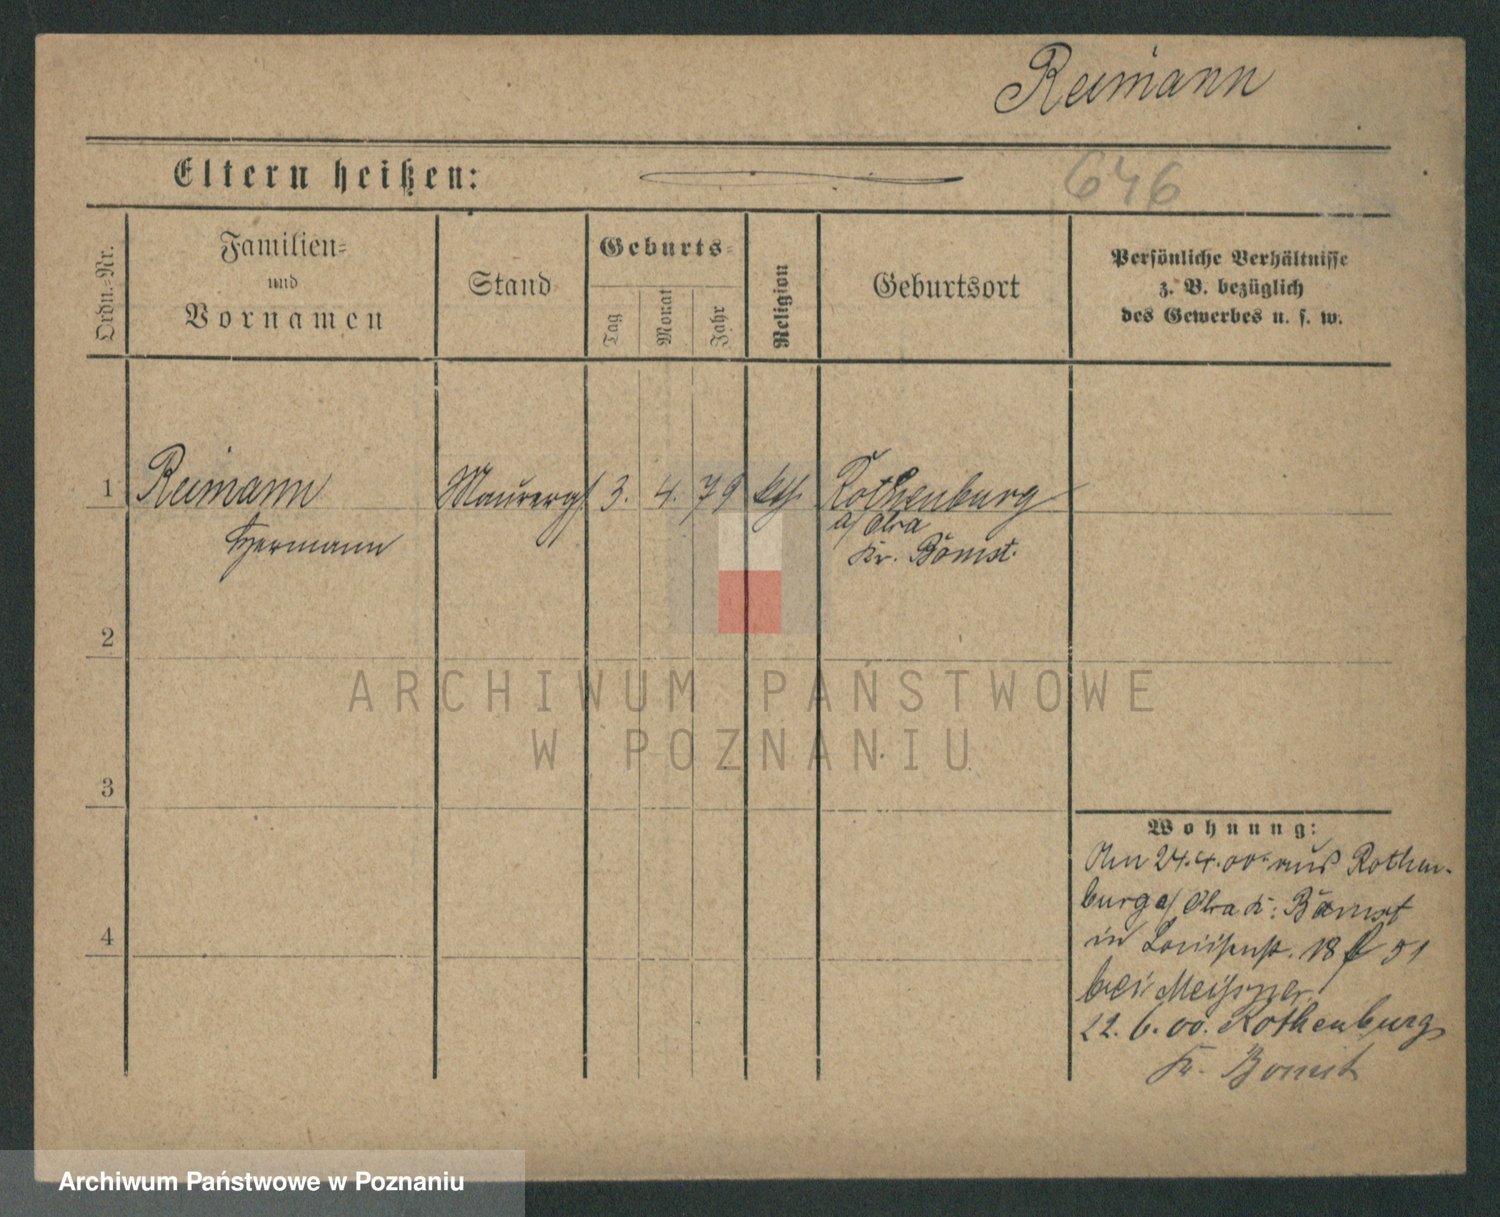 Reimann
Eltern heißen:
646
Ordn.-Nr.
Familien-
und
Vornamen
Stand
Geburts-
Tag
Monat
Jahr
Religion
Geburtsort
Persönliche Verhältnisse
z. B. bezüglich
des Gewerbes u. s. w.
1 Reimann Maurerges. 3. 4. 79 Rothenburg
a/ Obra
Hermann Kr. Bomst.
2
ARCHIWUM PAŃSTWOWE
W POZNANIU
3
Wohnung:
24.4.00. aus Rothen-
burg a/ Obra K. Bomst
4
in Louisenst. 18 51
bei Meissner
22. 6. 00. Rothenburg
Kr. Bomst
Archiwum Państwowe w Poznaniu